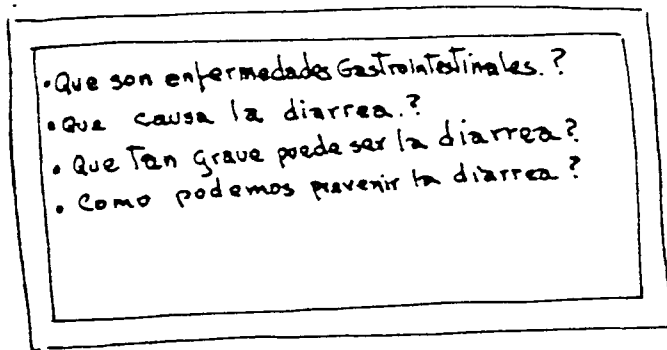 • Que son enfermedades Gastrointestinales.?
• Que causa la diarrea.?
• Que Tan grave puede ser la diarrea?
• Como podemos prevenir la diarrea?